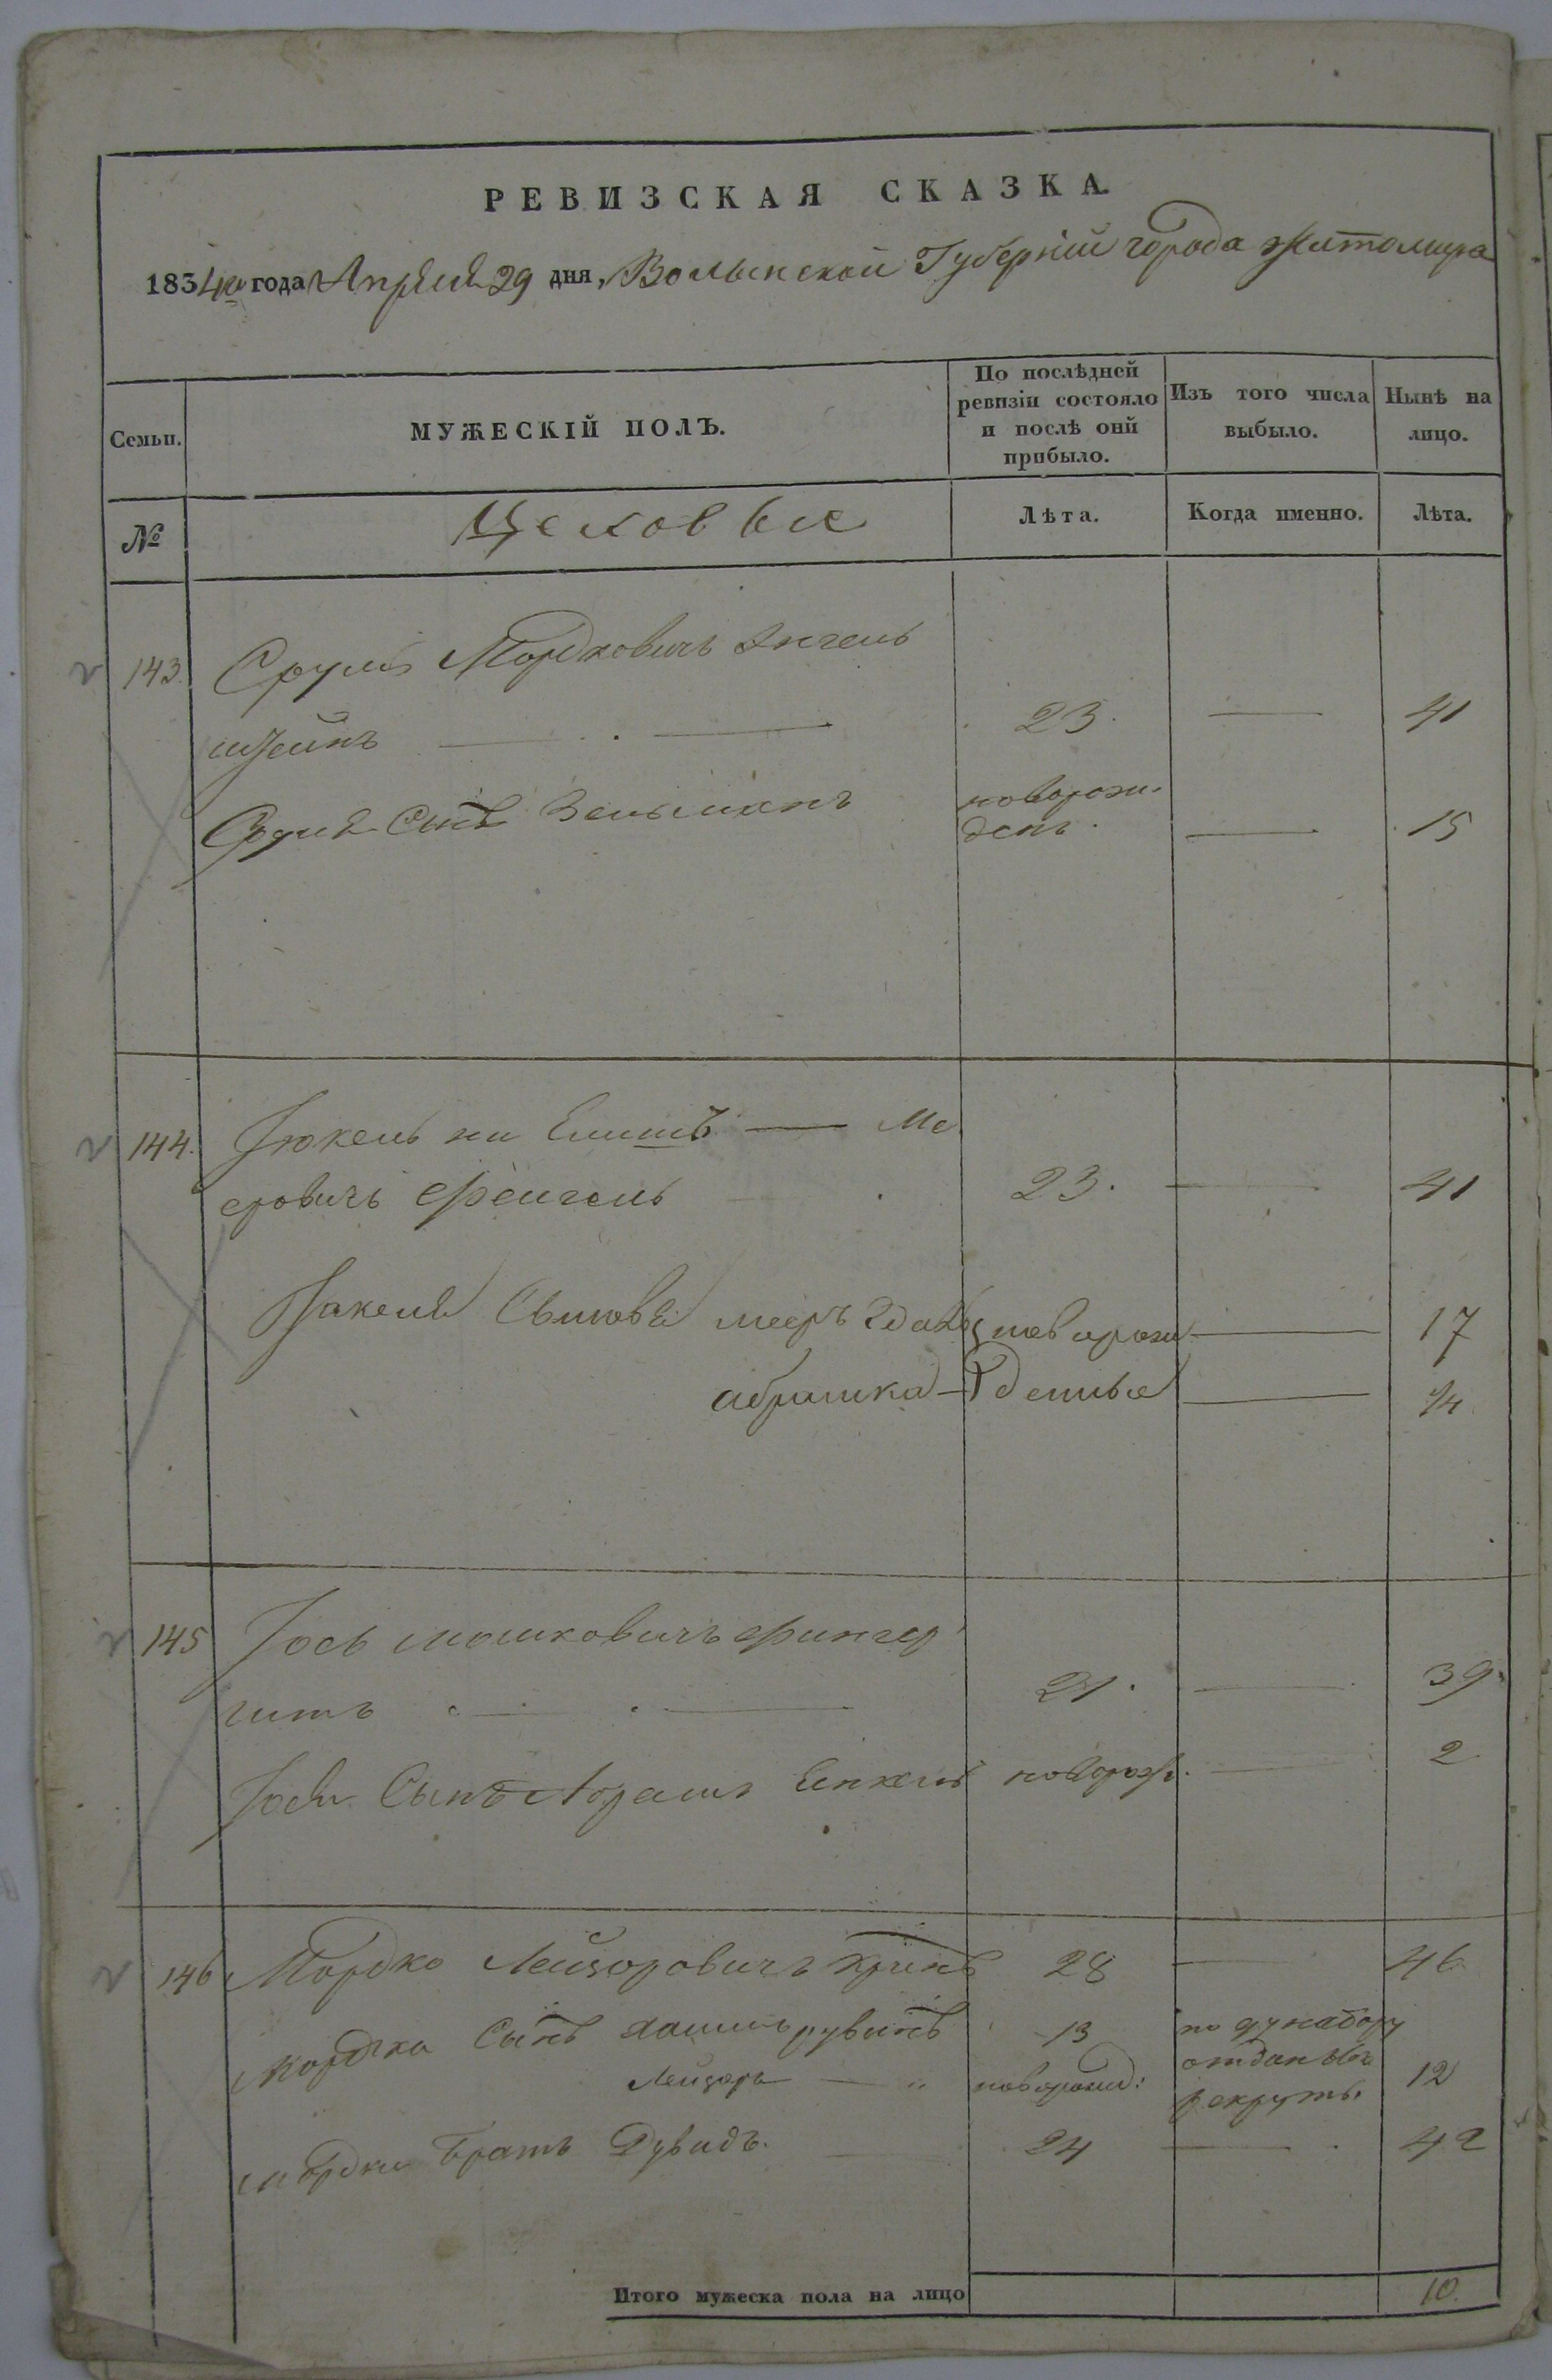 РЕВИЗСКАЯ СКАЗКА.
1834го года Апреля 29 дня, Волынской Губерніи города Житомира
Семьи.
МУЖЕСКІЙ ПОЛЪ.
По послѣдней ревизіи состояло и послѣ оній прибыло.
Изъ того числа выбыло.
Нынѣ на лицо.
№
Цеховые
Лѣта.
Когда именно.
Лѣта.
143. Сруль Мордковичъ Ангель
штейнъ 23. 41
Сруля Сынъ Зельманъ новорож-
денъ. 15
144. Ме
еровичъ Фейгель 23. 41
Сыновья Мееръ новорож 17
Абрамка денные 1/4
145 Іось Мошковичъ Фингер
гутъ 21. 39.
Іося Сынъ Абрамъ новорож. 2
146 Мордко Лейзоровичъ 28 46
Мордка Сынъ 13 по набору
отданъ въ
рекруты.
Лейзоръ новорожд: 12
Мордки Братъ Дувидъ. 24 42
Итого мужеска пола на лицо 10.